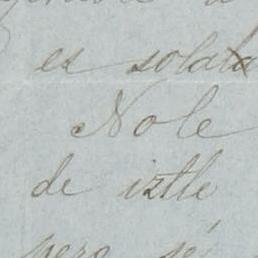 es solata
Nole
de iztle
pero sé